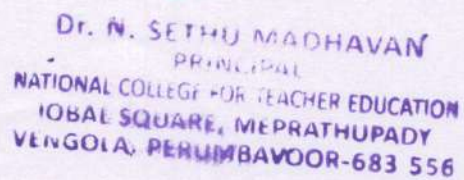 Dr. N. SETHU MADHAVAN
PRINCIPAL
NATIONAL COLLEGE FOR TEACHER EDUCATION
IQBAL SQUARE, MEPRATHUPADY
VENGOLA, PERUMBAVOOR-683 556